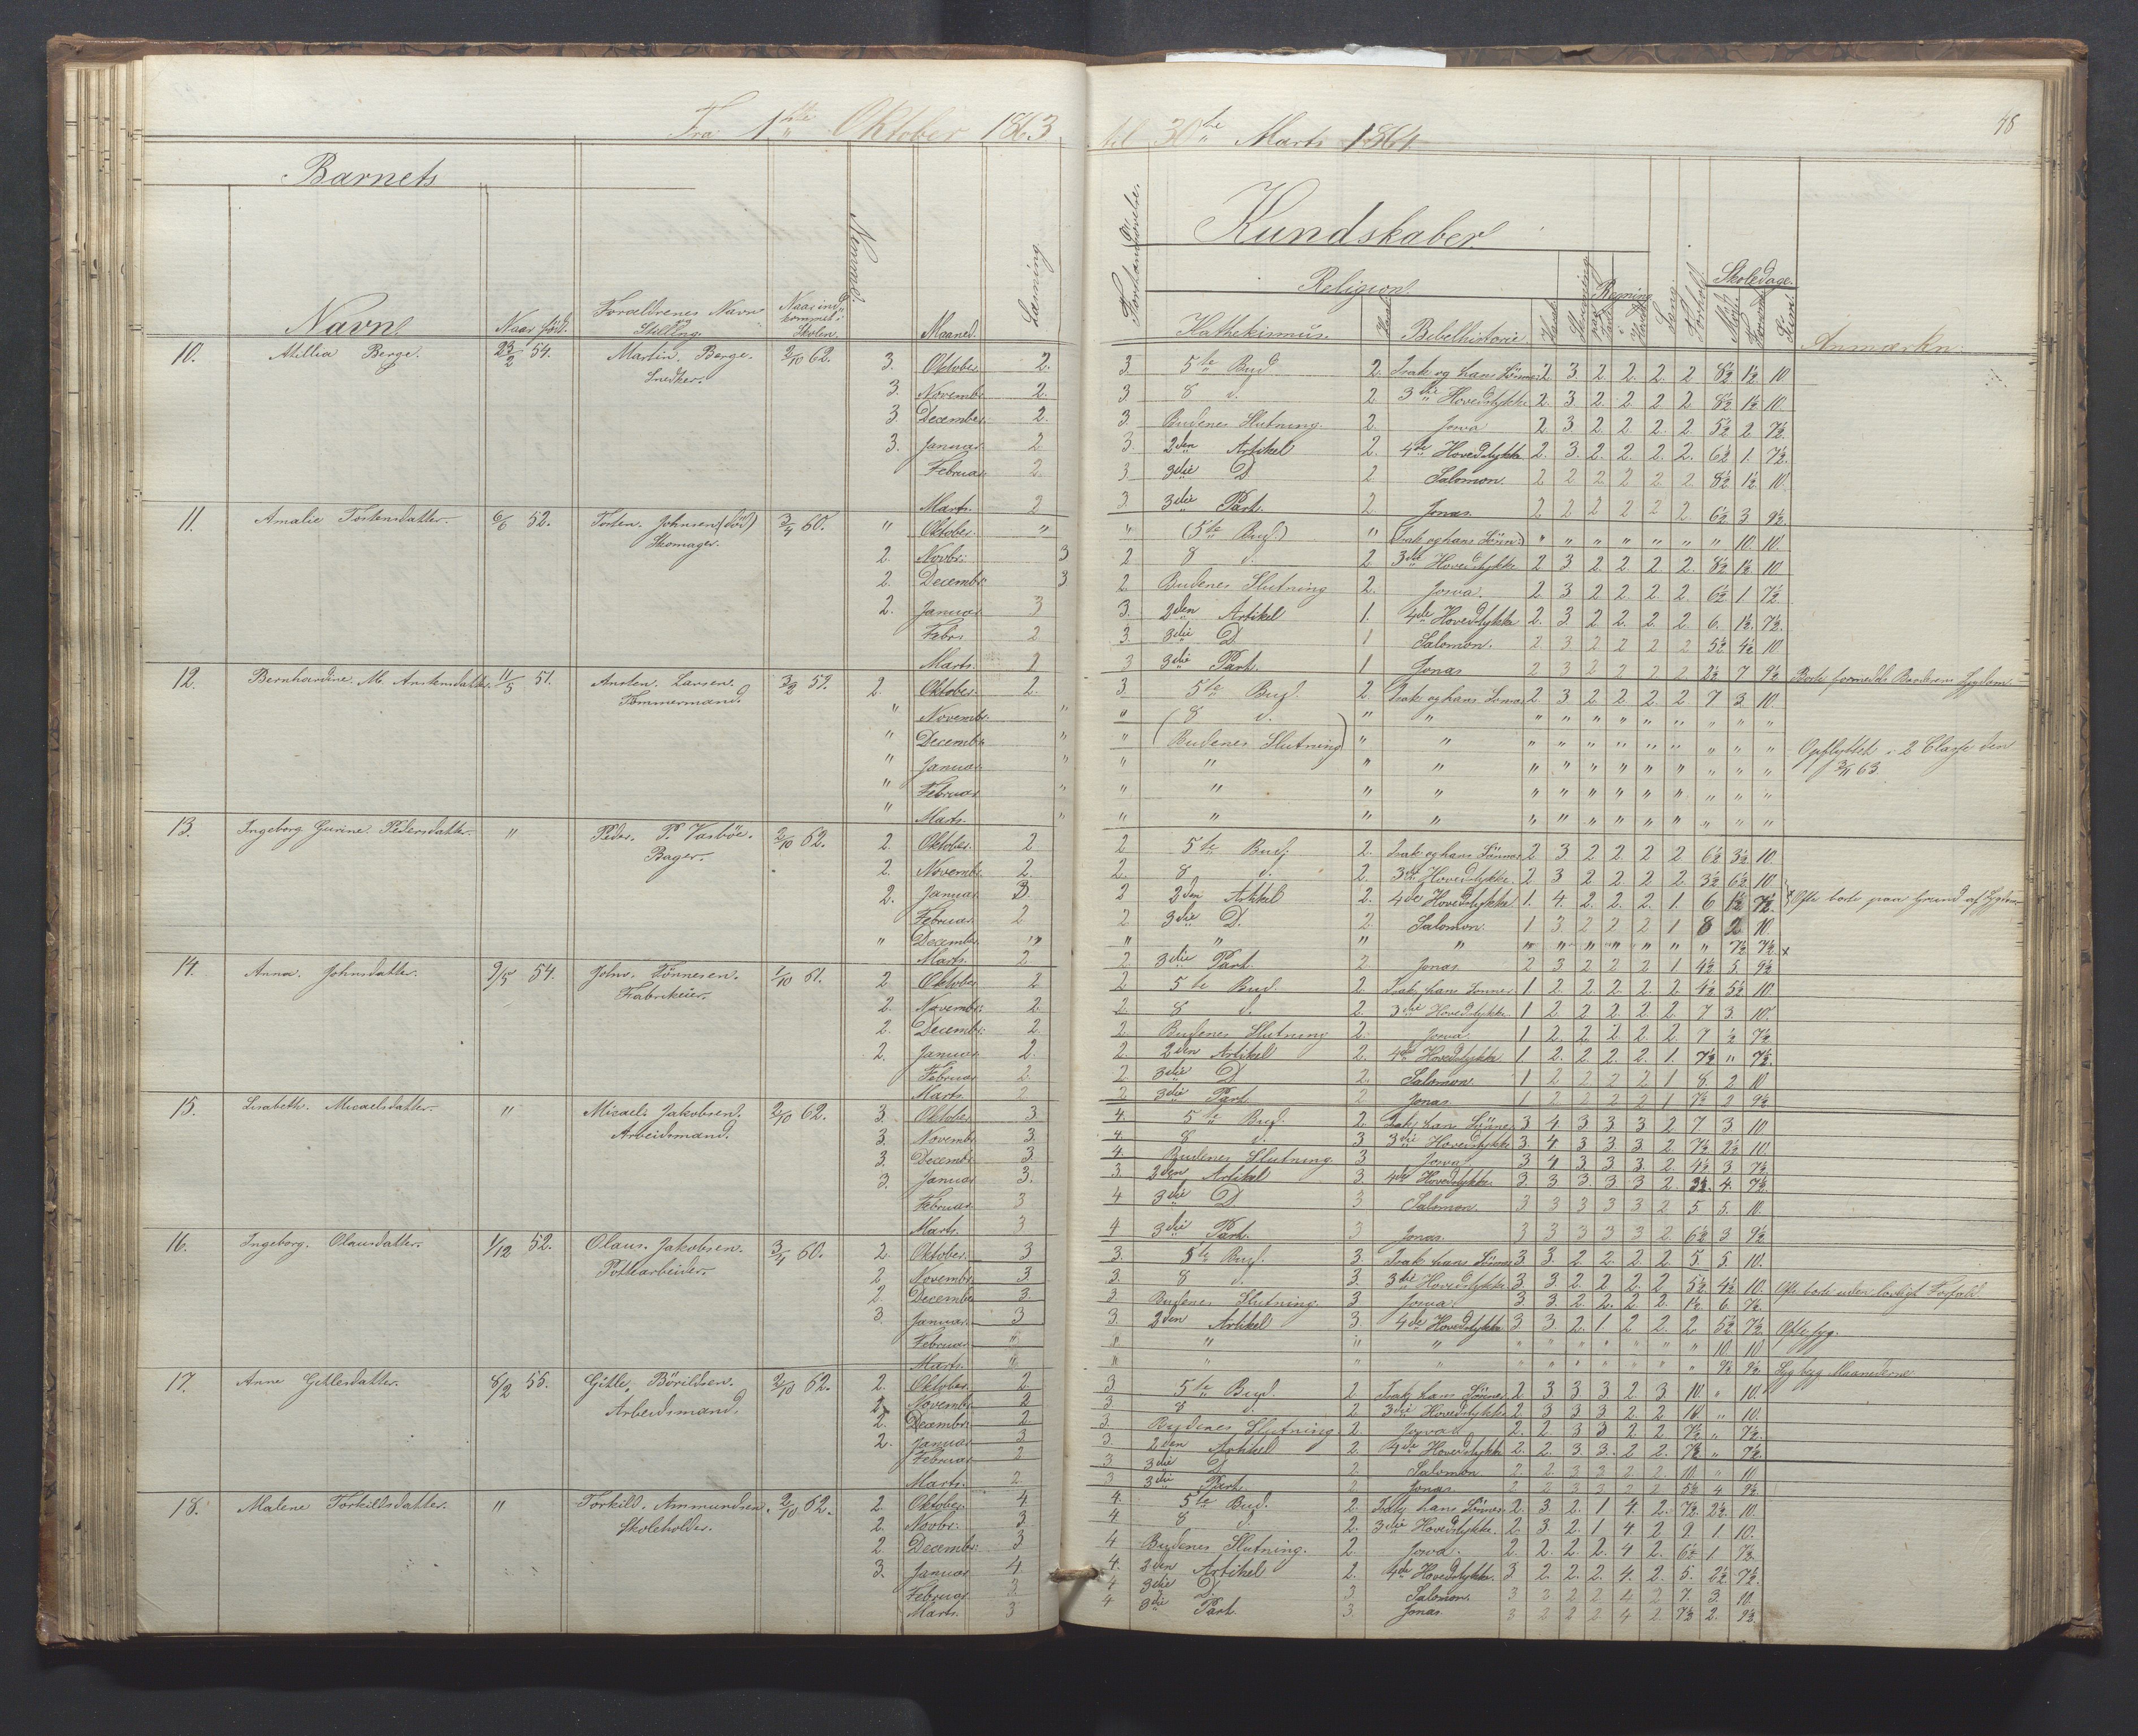 Fra 1ste Oktober 1863 til 30te Marts 1864.
48
Barnets
Kundskaber
Religion
Skoledage
Navn
Naar född.
Forældrenes Navn og Stilling.
Naar ind kommet i Skolen.
Maaned.
Læsning
Kathekismus.
Bibelhistorie.
Sang
Forhold
Anmærkn.
10. Millia Berge. 23/2 54. Martin. Berge. Snedker. 2/10 62.
3. Oktober. 2. 3. 5te Bud 2. Isak og hans Sønner 2. 3. 2. 2. 2. 2 8½ 1½ 10.
3. Novembr. 2. 3 8 d. 2. 3die Hovedstykke 2. 3. 2. 2. 2. 2 8½ 1½ 10.
3. Decembr. 2. 3. Budenes Slutning. 2. Josva 2. 3. 2. 2. 2. 2 5½ 2. 7½.
3. Januar. 2 3. 2den Artikel 2. 4de Hovedstykke 2. 3. 2. 2. 2. 2. 6½ 1. 7½.
Februar. 2. 3 3die D. 2 Salomon. 2 2 2 2 2 2 8½ 1½ 10
Marts. 2 3 3die Part. 2. Jonas. 2 2 2 2 2 2. 6½ 3 9½
11. Amalie Tostensdatter. 6/6 52. Tosten. Johnsen (död) Skomager. 3/4 60.
" Oktober. " " (5te Bud.) " Isak og hans Sønn.) " " " " " " " 10. 10.
2. Novbr: 3 2 8 d. 2 3die Hovedstykke 2 3 2. 2. 2. 2. 8½ 1½ 10
2. Decembr. 3 2 Budenes Slutning 2. Josva. 2. 3 2 2. 2. 2 6½ 1 7½
2. Januar 3 3. 2den Artikel 1. 4de Hovedstykke 2. 3 2. 2. 2. 2 6. 1½. 7½.
Febr. 2 3. 3die D 1 Salomon. 2. 3 2 2 2 2 5½ 4½ 10
Marts. 2 3 3die Part. 1 Jonas 2 3 2 2 2 2 2½ 7 9½
12. Bernhardine M. Anstensdatter. 11/5 51. Ansten. Larsen. Tømmermand.
2. Oktober. 2. 3. 5te Bud. 2. Isak og hans Sønner 2 3 2. 2. 2. 2 7 3. 10.
" Novembr. " " (8 d. " " " " " " " " " " "
" Decembr. " " Budenes Slutning) " " " " " " " " " " " Opflyttet i 2 Classe den
" Januar " " " " " " " " " " " " " " 3/11 63
" Februar " " " " " " " " " " " " " "
" Marts. " " " " " " " " " " " " " "
13. Ingeborg Gurine. Pedersdatter. " Peder. P. Vasbøe. Bager. 2/10 62.
2. Oktober. 2 2 5te Bud 2. Isak og hans Sønner 2 3 2 2. 2 2 6½ 3½ 10.
2. Novembr. 2. 2. 8 d. 2. 3die Hovedstykke. 2 3 2 2. 2 2 3½ 6½ 10
2. Januar 3. 2 2den Artikel 2. 4de Hovedstykke 1. 4. 2. 2. 2. 1. 6 1½ 7½. Ofte borte paa Grund af Sygdom
Februar 2 2 3die D. 2. Salomon. 1 3 2 2 2 1 8 2 10.
" Decembr. " " " " " " " " " " " " 7½ 7½ x
Marts. 2 2 3die Part. 2. Jonas. 2 3 2 2 2 1 4½ 5. 9½
14. Anna. Johnsdatter. 9/5 54. John. Tönnesen. Fabrikeier. 1/10 61.
2 Oktober. 2 2 5te Bud. 2. Isak, hans Sønner. 1 2. 2. 2. 2. 2. 4½ 5½ 10.
2. Novembr. 2. 2 8 d. 2. 3die Hovedstykke 1 2. 2. 2. 2. 2 7 3. 10.
2. Decembr. 2. 2 Budenes Slutning 2. Josva. 1 2. 2. 2. 2. 2 7 ½ 7½
2. Januar 2. 2. 2den Artikel 2. 4de Hovedstykke 1. 2. 2. 2. 2. 1. 7½ " 7½.
Februar 2. 2 3die D 2. Salomon. 1 2 2 2 2 1 8. 2 10
Marts. 2 2 3die Part 2 Jonas. 1 2 2 2 2 1 7½ 2 9½
15. Lisabeth. Micaelsdatter. " Micael. Jakobsen. Arbeidsmand. 2/10 62.
3. Oktober. 3 4. 5te Bud. 2. Isak, hans Sønner 3 4. 3 3 3 2 7 3. 10
3. Novembr. 3. 4. 8 d. 3 3die Hovedstykke 3. 4 3. 3 3. 2 7½ 2½ 10.
3. Decembr. 3. 4. Budenes Slutning. 3 Josva. 3 4 3. 3 3. 2. 4½ 3 7½
3. Januar 3. 3. 2den Artikel 3. 4de Hovedstykke. 3. 3 3. 3 3 2. 3½. 4. 7½.
Februar. 3 4 3die D. 3 Salomon 3 3 3 3 3 2 5. 5. 10.
Marts. 3 4 3die Part. 3 Jonas. 3 3 3 3 3 2. 6½ 3 9½
16. Ingeborg. Olausdatter. 1/12 52. Olaus. Jakobsen. Pottearbeider. 3/4 60.
2. Oktober. 3 3. 5te Bud. 3. Isak, hans Sønner 3. 3 2 2 2. 2 5. 5. 10.
2 Novembr. 3. 3. 8 d. 3. 3die Hovedstykke 3. 3 2. 2. 2. 2 5½ 4½ 10. Ofte borte uden lovligt Forfald.
2. Decembr. 3. 3. Budenes Slutning. 3 Josva. 3 3. 2. 2. 2 2. 1½. 6. 7½.
3. Januar 3 3. 2den Artikel 3. 4de Hovedstykke 3. 3. 2. 1 2 2. 2 5½ 7½. Ofte syg.
Februar " " " " " " " " " " " " 10 10
Marts. " " " " " " " " " " " " 9½ 9½. Syg begge Maanederne
17. Anne Gitlesdatter. 8/2 55. Gitle. Börildsen. Arbeidsmand. 2/10 62.
2. Oktober. 2. 3 5te Bud. 2 Isak, hans Sønner 2 3 3. 3 2 3. 10. " 10.
2. Novembr. 2 3. 8 d. 2 3die Hovedstykke 2 3 3 3 2. 2 10. " 10.
2. Decembr. 2 3. Budenes Slutning. 2. Josva 2. 2. 3 3 2 2 7½ " 7½.
2. Januar 3 3. 2den Artikel 2. 4de Hovedstykke 2. 2. 3 3. 2 2. 7½ " 7½.
Februar 2 3 3die D. 2. Salomon 2. 2. 3 3 2. 2. 10. " 10
Marts. 2. 3 3die Part. 2 Jonas. 2 2 3 3 2 2 5½ 4 9½
18. Malene Torkildsdatter. " Torkild. Ammundsen. Skoleholder. 2/10 62.
2. Oktober. 4. 4. 5te Bud. 2. Isak, hans Sønner. 2. 3. 2. 1 4. 2. 7½ 2½. 10.
2. Novbr. 3. 4 8 d. 2. 3die Hovedstykke. 2 3. 2. 1 4. 2 9. 1. 10.
2. Decembr. 3 4 Budenes Slutning. 2. Josva. 2. 2. 2. 2. 4 2. 6½ 1 7½
3. Januar 4. 4. 2den Artikel 2. 4de Hovedstykke. 3 2. 2. 2. 4. 2 5. 2½. 7½.
Februar 3 4 3die D. 3. Salomon. 3 3 2 2 4 2 7. 3. 10.
Marts. 3 4 3die Part 3. Jonas. 3 2 2 2 4 2 7½ 2. 9½.